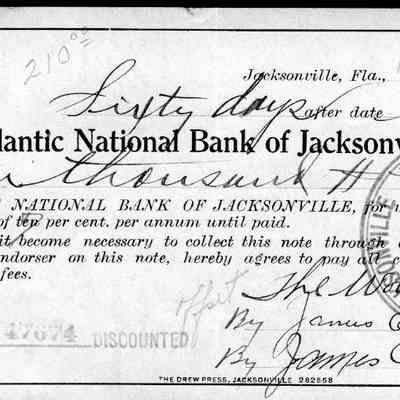 210⁰⁰
Jacksonville, Fla.,
Sixty days after date
lantic National Bank of Jacksonv
thousand
NATIONAL BANK OF JACKSONVILLE, for
of ten per cent. per annum until paid.
it become necessary to collect this note through
ndorser on this note, hereby agrees to pay all c
fees.
offset
The
47674 DISCOUNTED
By James
By James
THE DREW PRESS, JACKSONVILLE 282558